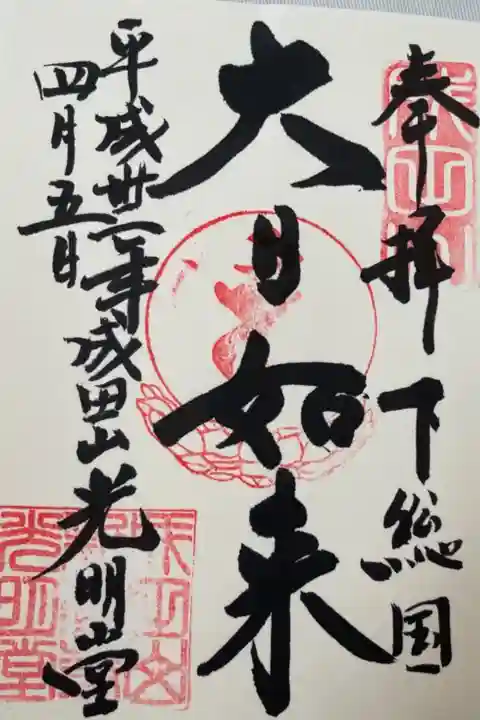 奉拝 下総国
大日如来
平成卅一年成田山光明堂
四月五日